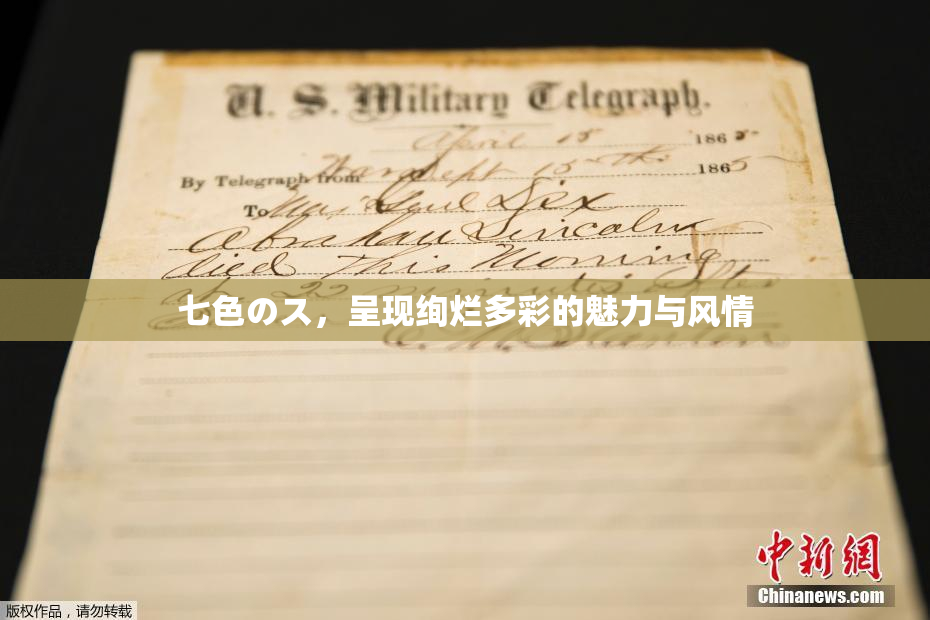 U. S. Military Telegraph.
April 15 1865
By Telegraph from War Dept 15th 1865
To Maj Genl Dix
Abraham Lincoln
died This Morning
at 22 minutes after
七色のス，呈现绚烂多彩的魅力与风情
E. M. Stanton
中新网
Chinanews.com
版权作品，请勿转载